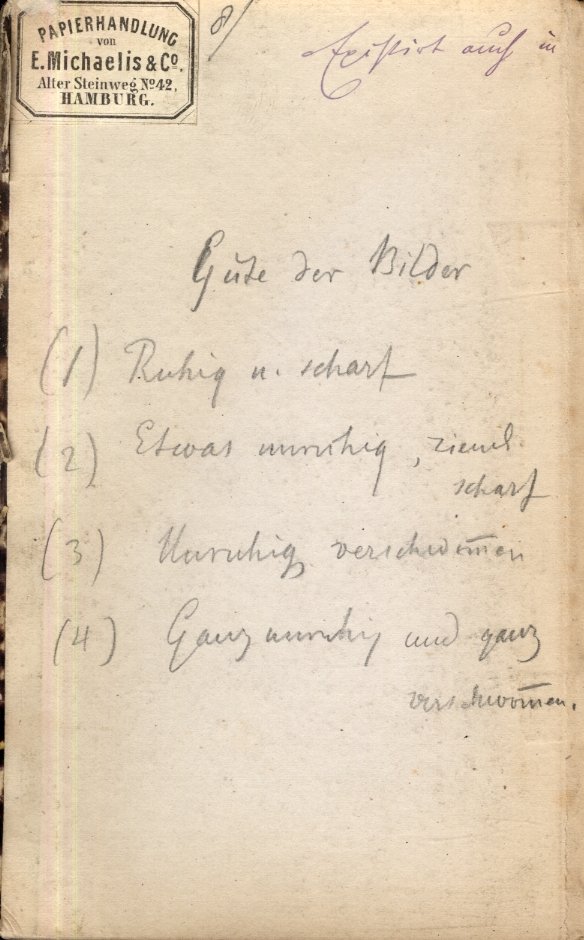 PAPIERHANDLUNG
von
E. Michaelis & Co.
Alter Steinweg No 42.
HAMBURG.
8/
Existirt auch in
Güte der Bilder
(1) Ruhig u. scharf
(2) Etwas unruhig, zieml
scharf
(3) Unruhig verschwom̅en
(4) Ganz unruhig und ganz
verschwom̅en.